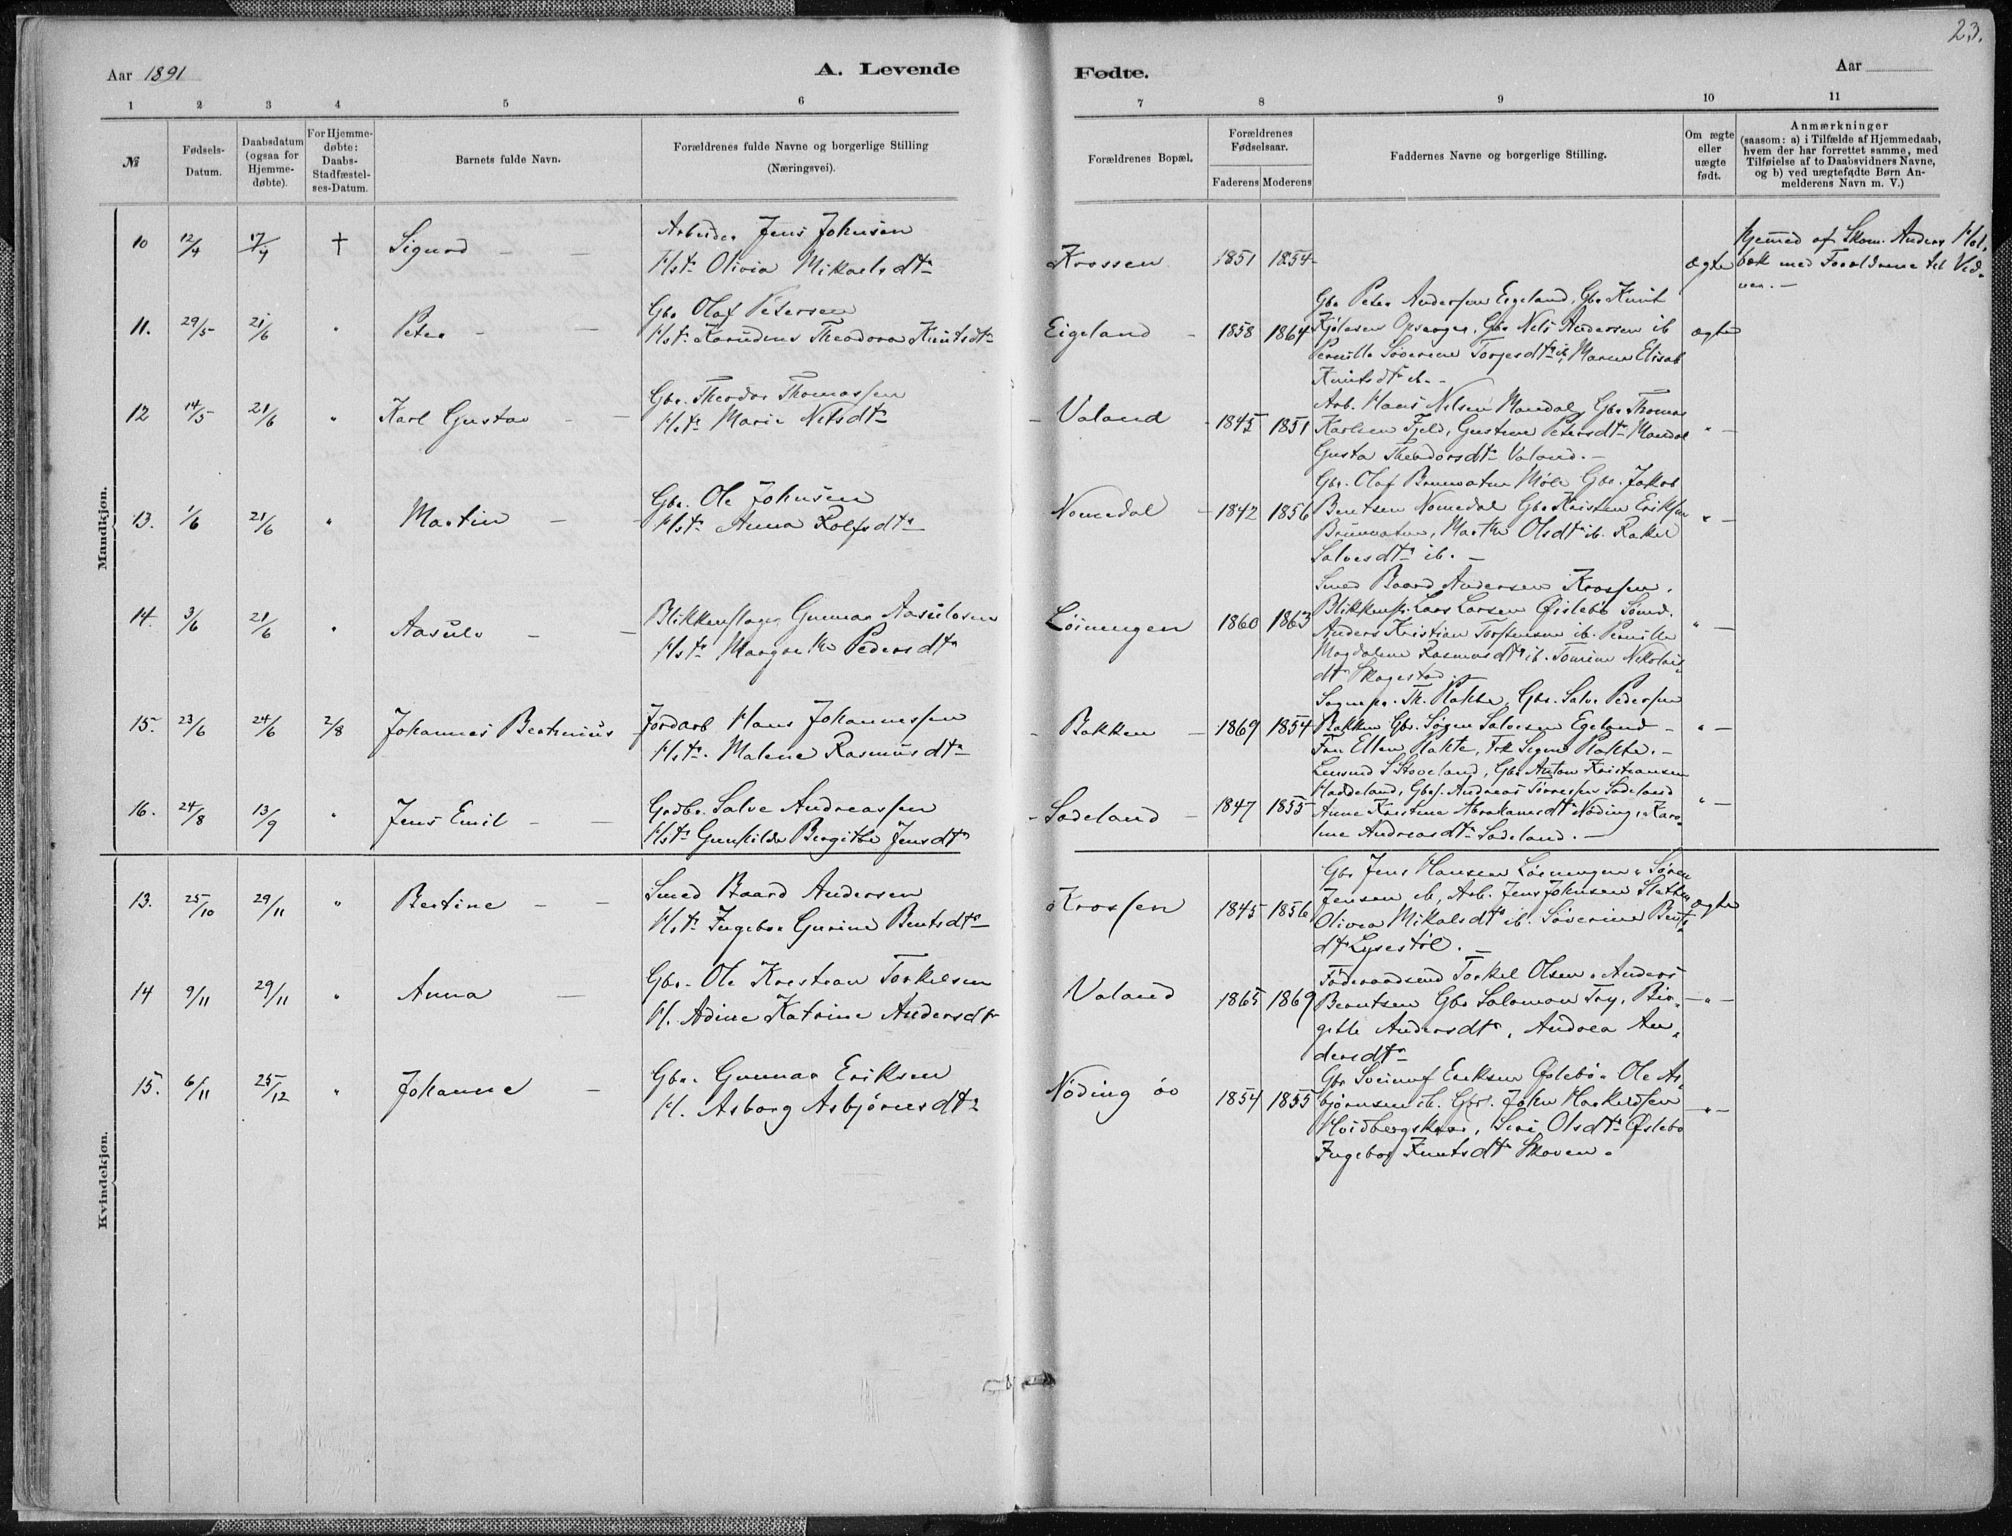 23.
Aar 1891
A. Levende
Fødte.
Aar
1 2 3 4 5 6 7 8 9 10 11
№
Fødsels-
Datum.
Daabsdatum
(ogsaa for
Hjemme-
døbte).
For Hjemme-
døbte:
Daabs-
Stadfæstel-
ses-Datum.
Barnets fulde Navn.
Forældrenes fulde Navne og borgerlige Stilling
(Næringsvei).
Forældrenes Bopæl.
Forældrenes
Fødselsaar.
Faderens Moderens
Faddernes Navne og borgerlige Stilling.
Om ægte
eller
uægte
født.
Anmærkninger
(saasom: a) i Tilfælde af Hjemmedaab,
hvem der har forrettet samme, med
Tilføielse af to Daabsvidners Navne,
og b) ved uægtefødte Børn An-
melderens Navn m. V.)
Mandkjøn.
10 12/4 17/4 † Sigurd - -
Arbeider Jens Johnsen
Hstr Olivia Mikaelsdtr
Krossen 1851 1854 ægte
hjemmed af Skom. Anders Hol,
bæk med Forældrene til Vid-
ner. -
11. 29/5 21/6 " Peter - -
Gbr Olaf Petersen
Hstr Theodora Knutsdtr
Eigeland - 1858 1864
Gbr Peter Andersen Eigeland, Gbr Knut
Gbr Nels Andersen ib
Pernille Severine Torjesdtr ib, Maren Elisab
Knutsdtr ib. -
ægte
12 14/5 21/6 " Karl Gustav - -
Gbr. Theodor Thomassen
Hstr Marie Nilsdtr
- Valand - 1845 1851
Arb. Hans Nilsen Mandal, Gbr Thomas
Karlsen Fjeld, Gustine Petersdtr Mandal
Gusta Theodorsdtr Valand. -
" -
13. 1/6 21/6 " Martin - -
Gbr. Ole Johnsen
Hstr Anna Rolfsdtr
Nomedal - 1842 1856
Gbr. Olaf Brunvatne Møll Gbr. Jakob
Bentsen Nomedal Gbr Kristen Eriksen
Brunvatne, Marthe Olsdtr ib. Rakel
Salvesdtr ib. -
" -
14. 3/6 21/6 " Aasulv - -
Blikkenslager Gunnar Aasulvsen
Hstr Margrethe Pedersdtr
Løiningen 1860 1863
Smed Baard Andersen Krossen,
Blikkensl. Lars Larsen Øislebø Smed.
Anders Kristian Torstensen ib. Pernille
Magdalene Rasmusdtr ib. Tomine Nikolais
dtr Skagestad.
" -
15. 23/6 24/6 2/8 Johannes Bertinius
Jordarb Hans Johannessen
Hstr. Malene Rasmusdtr
- Bakken - 1869 1854
Sognepr. Th. Gbr. Salve Pedersen
Bakken Gbr. Søren Salvesen Egeland -
Fru Ellen Frk Signe
" -
16. 24/8 13/9 " Jens Emil - -
Grdbr. Salve Andreassen
Hstr Gunhilde Bergithe Jensdtr
- Sodeland - 1847 1855
Lensmd S. Stoveland, Gbr Anton Kristiansen
Haddeland, Gbes. Andreas Tønnessen Sodeland
Anne Kristine Abrahamsdtr Nøding, Karo-
line Andreasdtr Sodeland. -
" -
Kvindekjøn.
13. 25/10 29/11 " Bertine - -
Smed Baard Andersen
Hstr Ingebor Gurine Bentsdtr
Krossen 1845 1856
Gbr Jens Hansen Løiningen, Søren
Jensen ib, Arb. Jens Johnsen
Olivia Mikalsdtr ib. Severine Bents
dtr Lysestøl. -
ægte
14 9/11 29/11 " Anna -
Gbr. Ole Kristian Torkelsen
H. Adine Katrine Andersdtr
Valand 1865 1869
Føderaadsmd Torkel Olsen, Anders
Berntsen Gbr Salomon Try, Bir-
gitte Andersdtr, Andrea An,
dersdtr
- " -
15. 6/11 25/12 " Johanne -
Gbr. Gunnar Eriksen
H. Asborg Asbjørnsdtr
Nøding øv 1854 1855
Gbr Eriksen Øslebø, Ole As,
bjørnsen ib. Gbr. John
Siri Olsdtr Øslebø
Ingebor Knutsdtr Skoven.
- " -